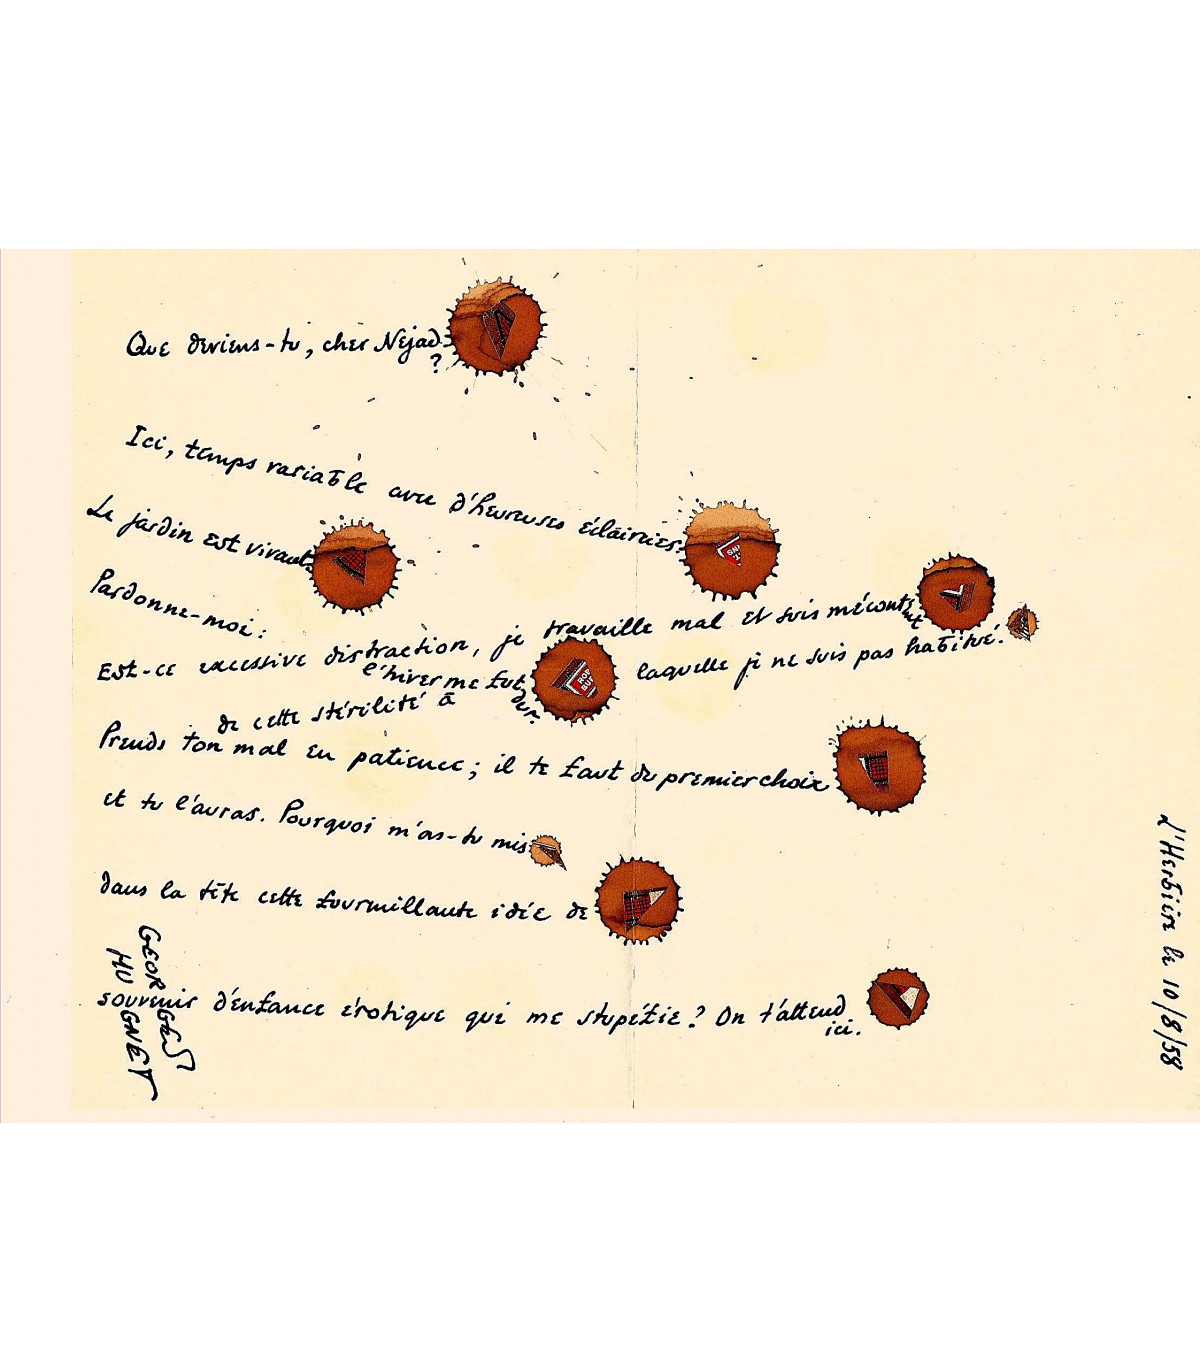 Que deviens-tu, cher Nejad
?
Ici, temps variable avec d'heureuses éclaircies.
Le jardin est vivant.
Pardonne-moi :
l'hiver me fut
dur.
je travaille mal et suis mécontent
Est-ce excessive distraction,
de cette stérilité à
laquelle je ne suis pas habitué.
Prends ton mal en patience; il te faut du premier choix
et tu l'auras. Pourquoi m'as-tu mis
dans la tête cette fourmillante idée de
souvenir d'enfance érotique qui me stupéfie? On t'attend
ici.
GEORGES
HUGNET
L'Herbière le 10/8/58